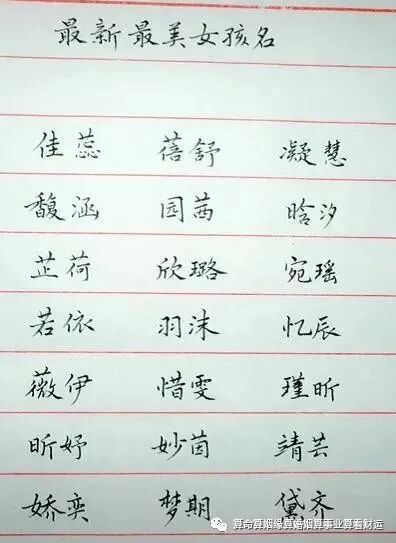 最新最美女孩名
佳蕊 蓓舒 凝慧
馥涵 园茜 晗汐
芷荷 欣璐 宛瑶
若依 羽沫 忆辰
薇伊 惜雯 瑾昕
昕妤 妙茵 靖芸
娇奕 梦期 黛齐
算命算姻缘算婚姻算事业算看财运